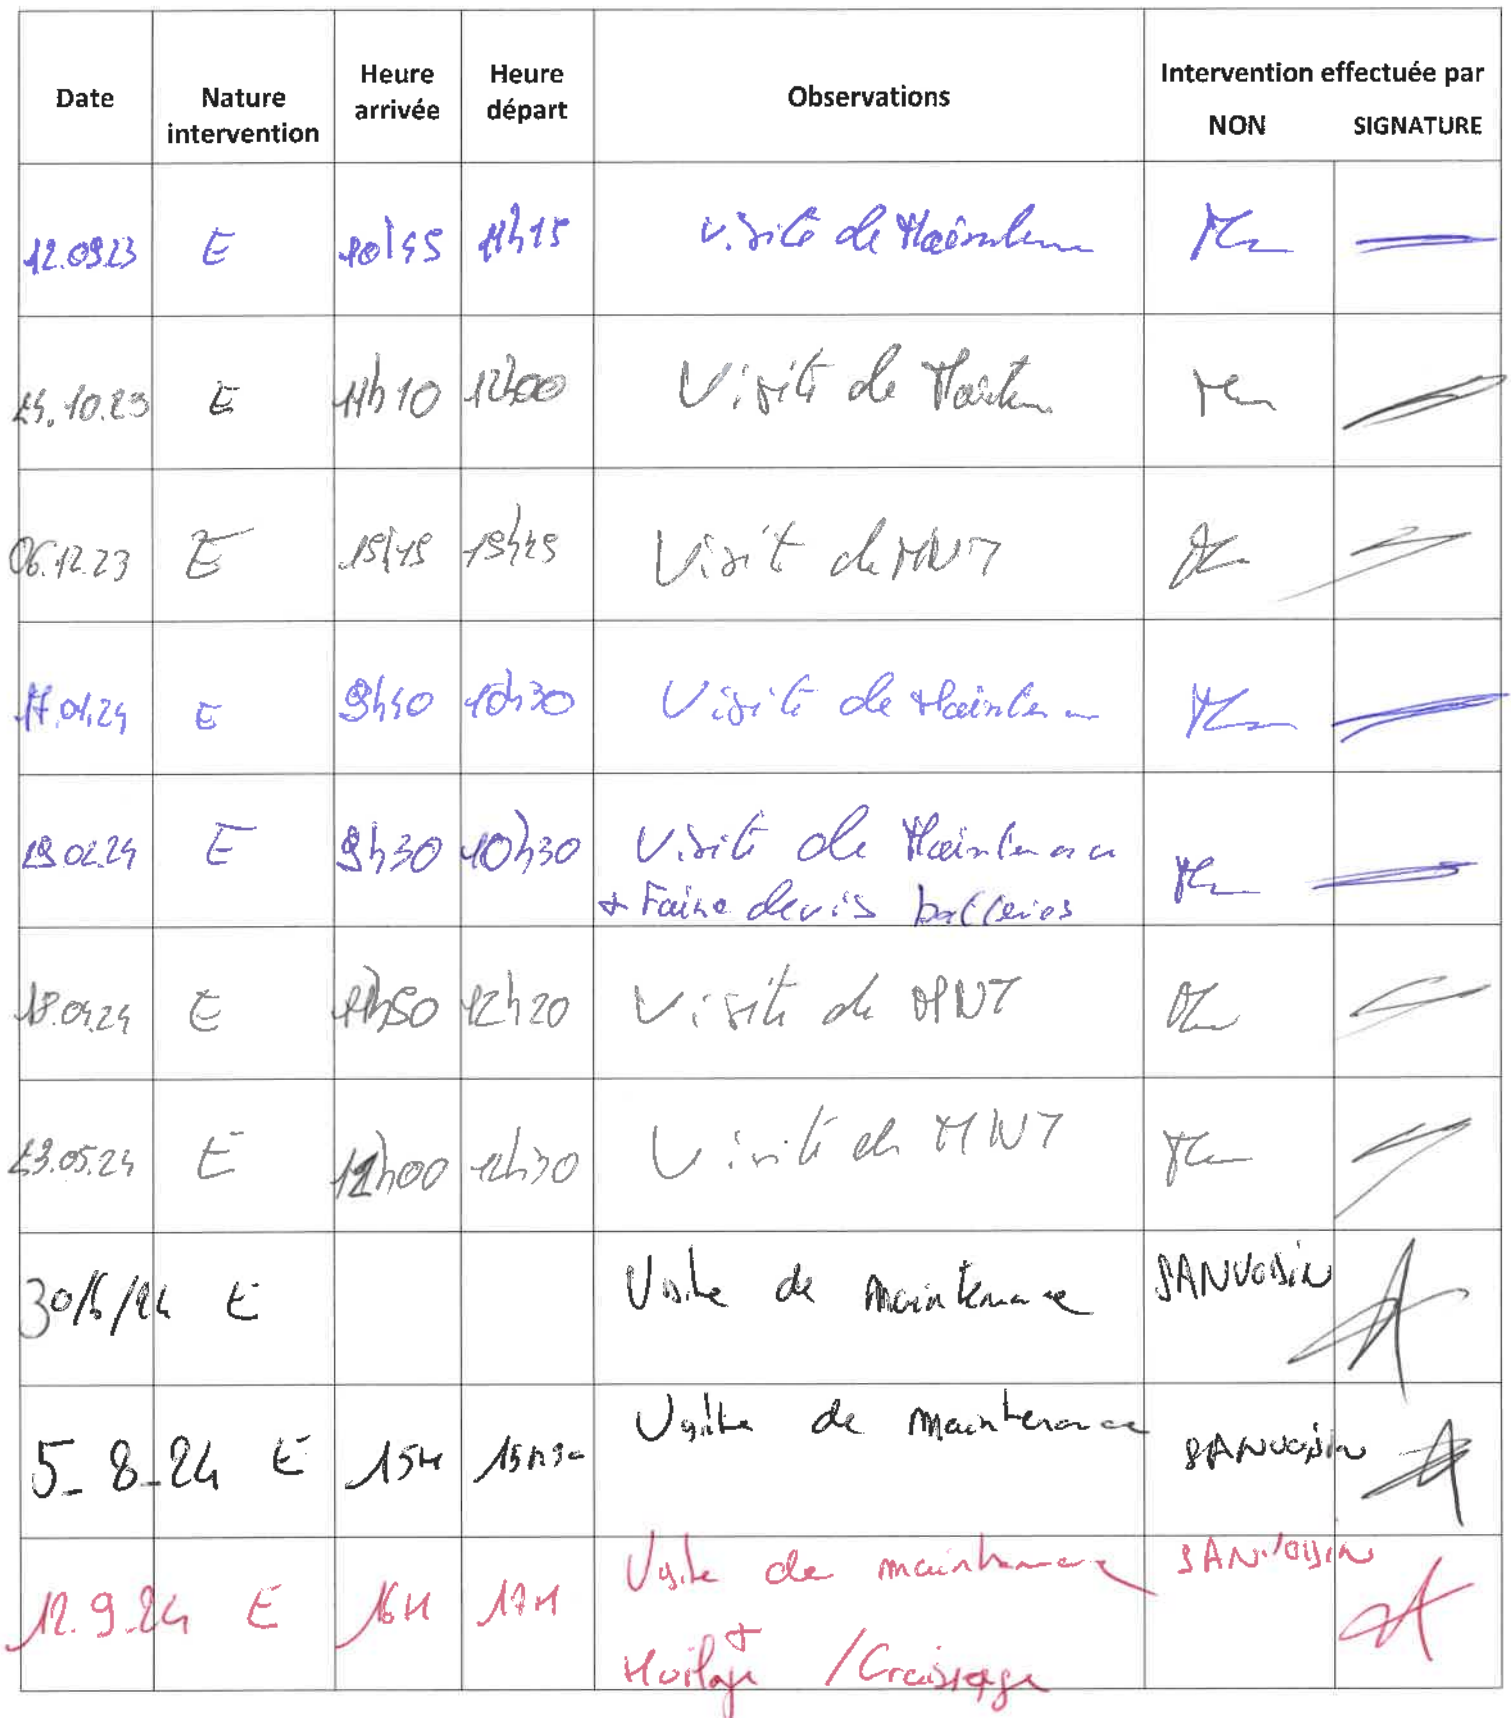 Date Nature intervention Heure arrivée Heure départ Observations Intervention effectuée par NON SIGNATURE
12.09.23 E 10h45 11h15 Visite de Maintenan
10.23 E 11h10 12h00 Visite de
06.12.23 E 15h15 15h45 Visite de MNT
17.01.24 E 9h40 10h30 Visite de Mainten
19.02.24 E 9h30 10h30 Visite de Maintenance
+ Faire devis batteries
18.04.24 E 11h50 12h20 Visite de MNT
23.05.24 E 12h00 12h30 Visite de MNT
E Visite de maintenance SANVOISIN
5-8-24 E 15H 15H30 Visite de maintenance SANVOISIN
12.9.24 E 16H 17H Visite de maintenance SANVOISIN
+
Huilage / Graissage